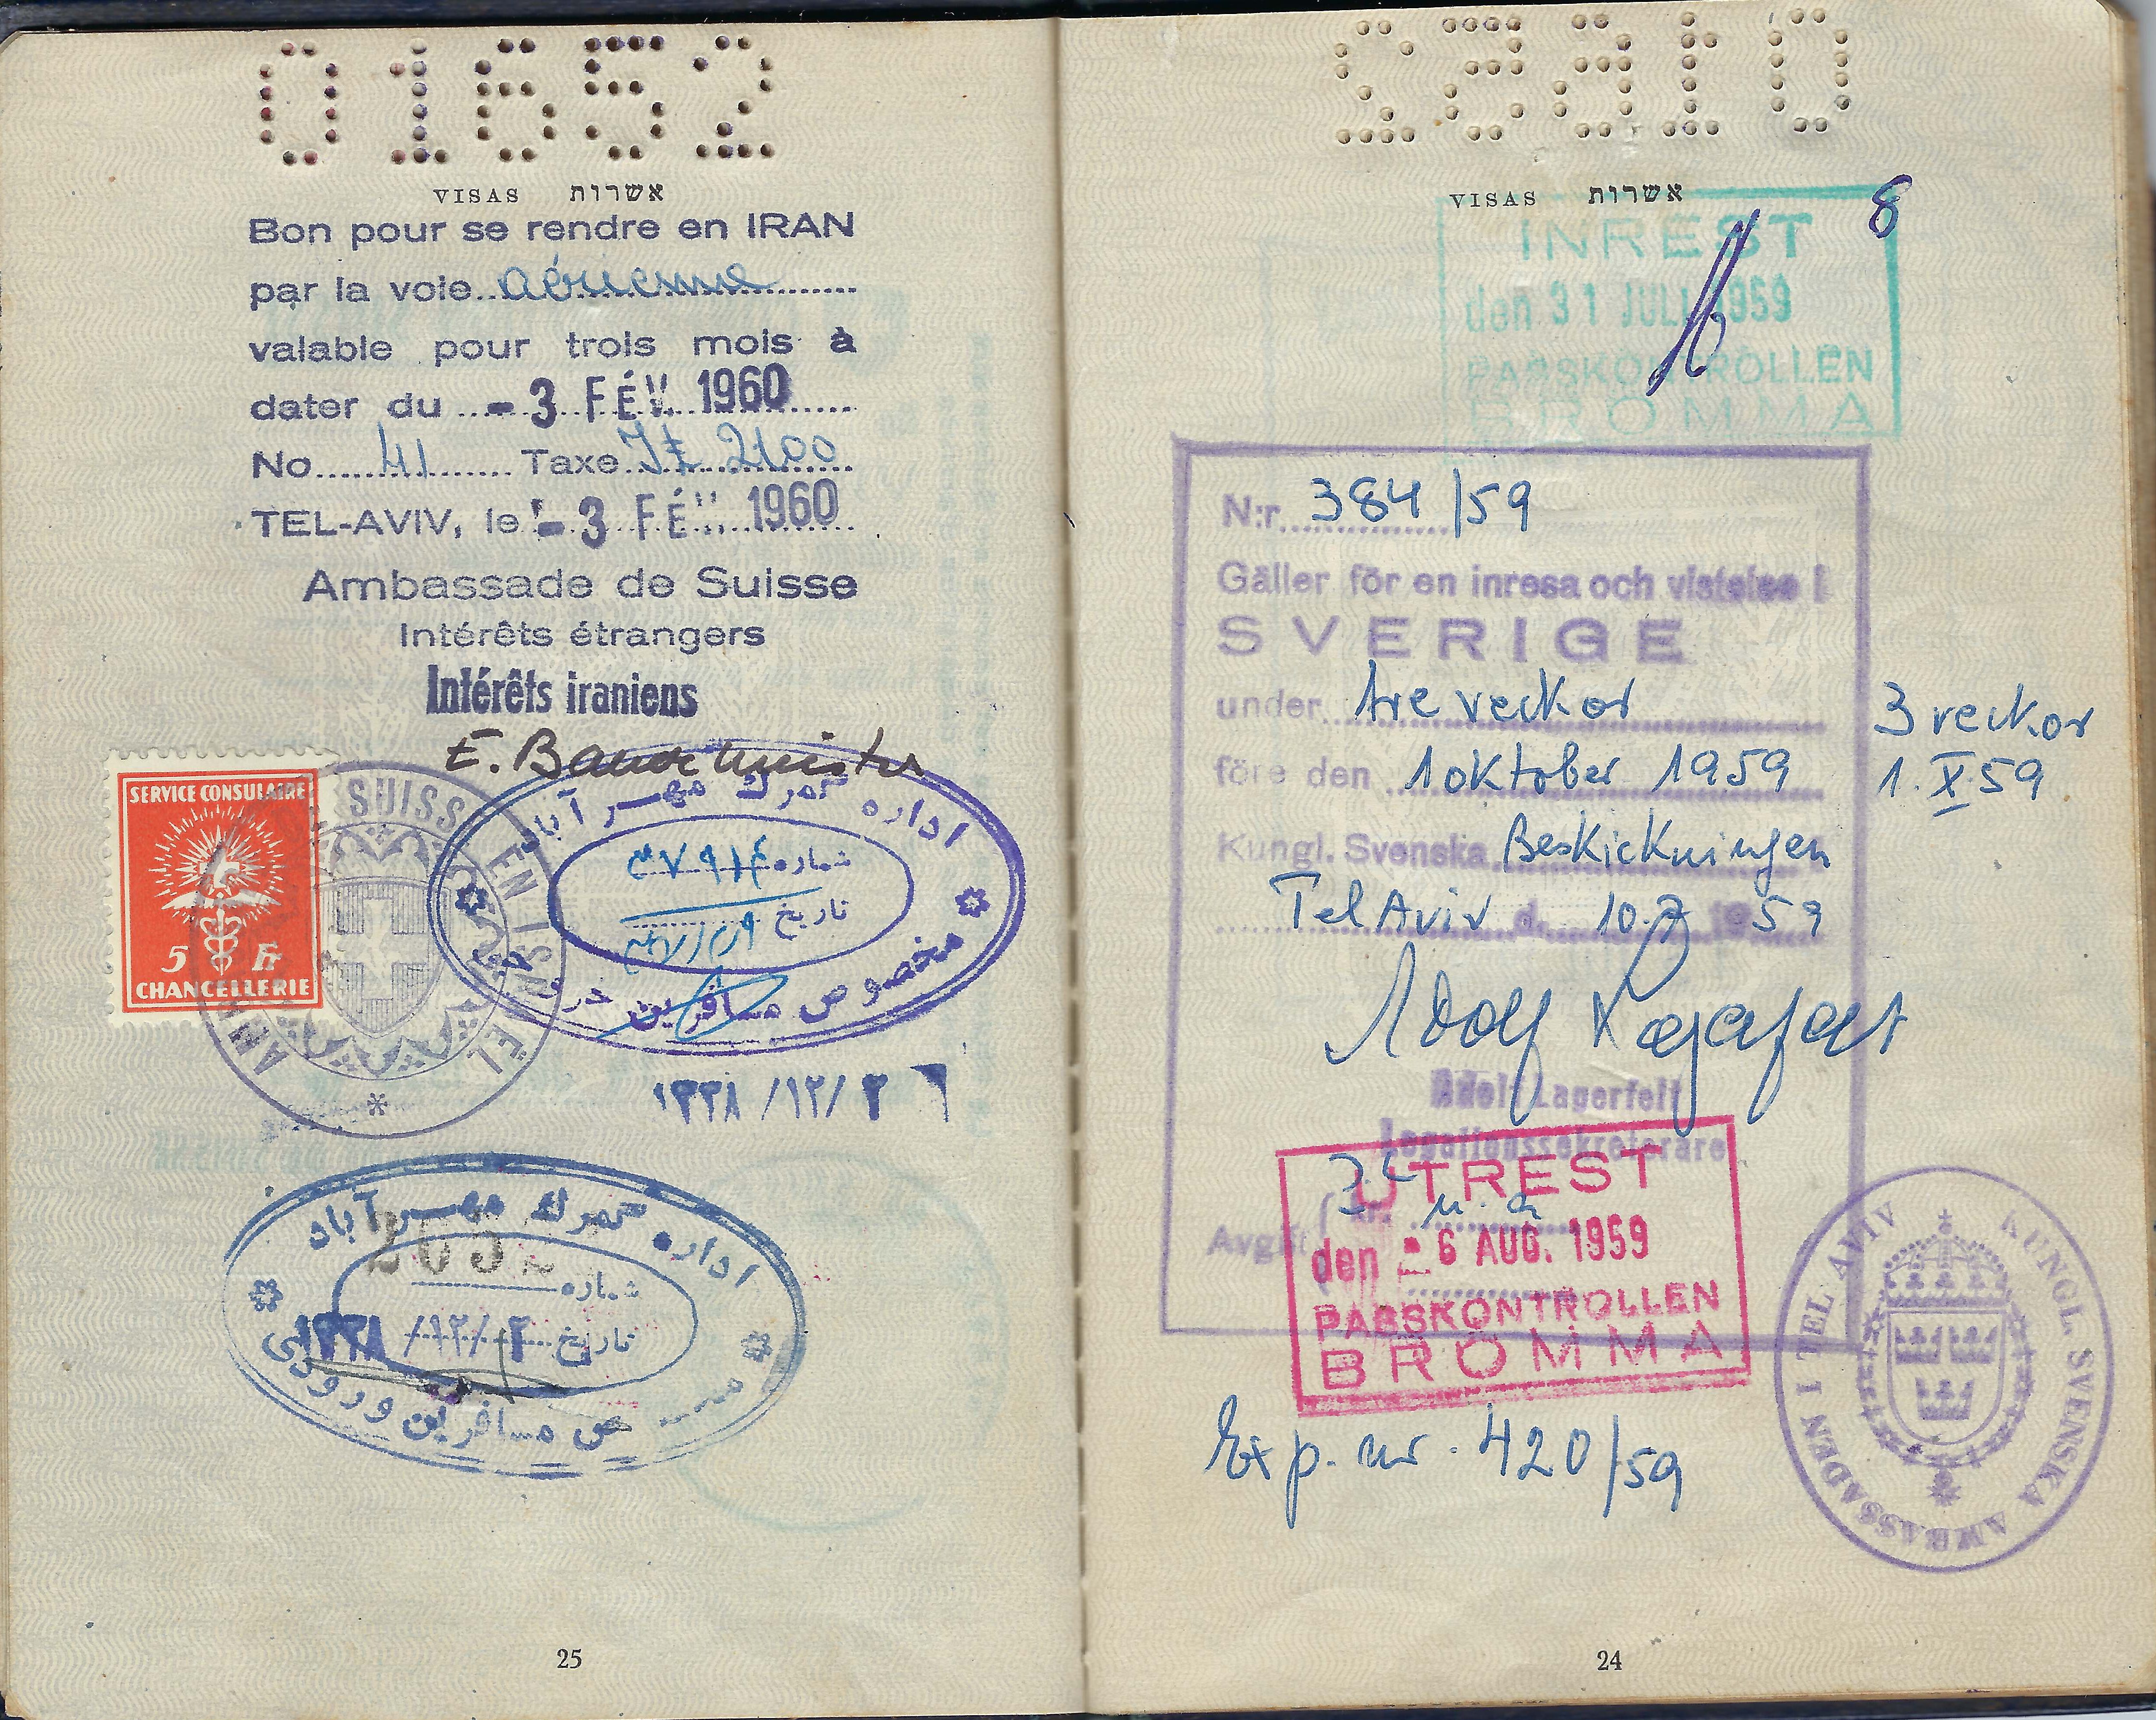 01652
VISAS אשרות
Bon pour se rendre en IRAN
par la voie aérienne
valable pour trois mois à
dater du - 3 FÉV. 1960
No 41 Taxe I£ 21.00
TEL-AVIV, le - 3 FÉV. 1960
Ambassade de Suisse
Intérêts étrangers
Intérêts iraniens
SERVICE CONSULAIRE
5 Fr
CHANCELLERIE
SUISSE EN ISRAEL
اداره گمرک مهرآباد
شماره
تاریخ
مخصوص مسافرین
۱۳۳۸/۱۲/۲
اداره گمرک مهرآباد
شماره
تاریخ ۱۳۳۸/۱۲/۲
مسافرین ورودی
25
01652
VISAS אשרות
8
INREST
den 31 JULI 1959
PASSKONTROLLEN
BROMMA
N:r 384/59
Gäller för en inresa och vistelse i
SVERIGE
under tre veckor
3 veckor
före den 1 oktober 1959
1.X.59
Kungl. Svenska Beskickningen
Tel Aviv d. 10.7 1959
Adolf Lagerfelt
Legationssekreterare
Avgift
UTREST
den - 6 AUG. 1959
PASSKONTROLLEN
BROMMA
Exp. nr. 420/59
KUNGL. SVENSKA AMBASSADEN I TEL AVIV
24